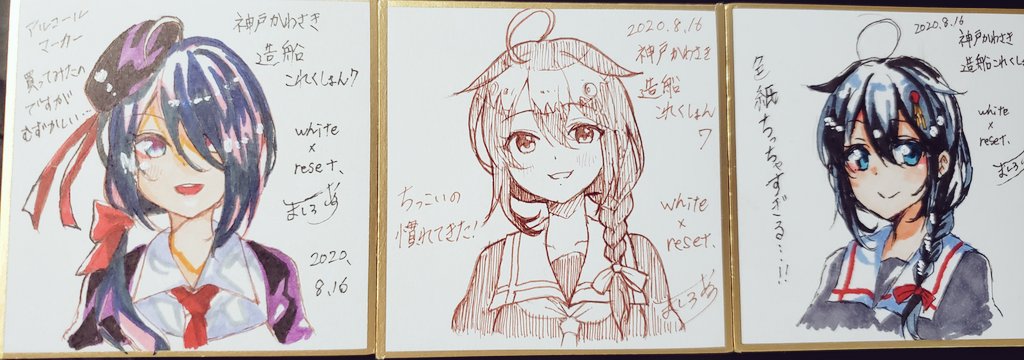 アルコール
マーカー
買ってみたの
ですが
むずかしい…
神戸かわさき
造船
これくしょん7
white
×
reset.
ましろ
2020.
8.16
2020.8.16
神戸かわさき
造船
これくしょん
7
ちっこいの
慣れてきた!
white
×
reset.
ましろ
2020.8.16
神戸かわさき
造船これくしょ
色紙ちっちゃすぎる…!!
white
×
reset.
ましろ